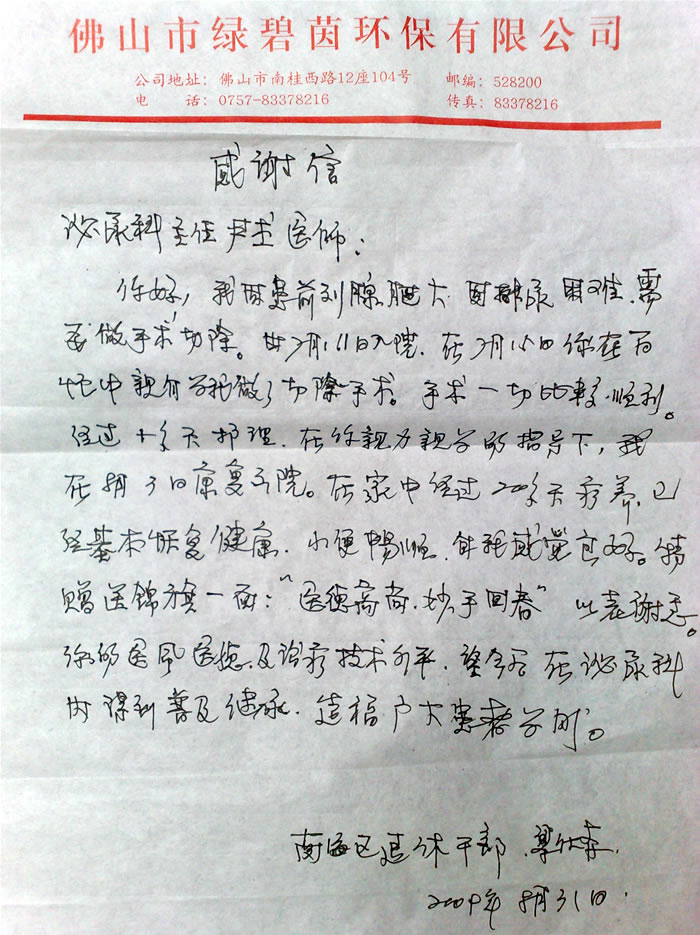 佛山市绿碧茵环保有限公司
公司地址：佛山市南桂西路12座104号 邮编：528200
电 话：0757-83378216 传真：83378216
感谢信
泌尿科主任 医师：
你好，我因患前列腺肥大，时排尿困难，需
要做手术切除。 月11日入院，在 月15日你在百
忙中亲自为我做了切除手术。手术一切比较顺利。
经过十多天护理，在你亲力亲为的指导下，我
在 月3日康复出院。在家中经过20多天疗养，已
经基本恢复健康，小便畅顺，自我感觉良好。特
赠送锦旗一面：“医德高尚，妙手回春”以表谢意。
你的医风医德及诊疗技术水平， 在泌尿科
内得到普及继承，造福广大患者 。
南海区退休干部
2009年8月31日．